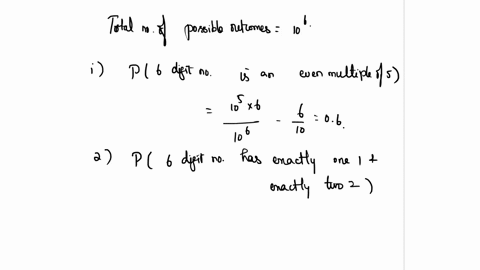 Total no. of possible outcomes = 10^6.
i) P( 6 digit no. is an even multiple of 5)
= (10^5 × 6)/10^6 - 6/10 = 0.6.
2) P( 6 digit no. has exactly one 1 +
exactly two 2 )